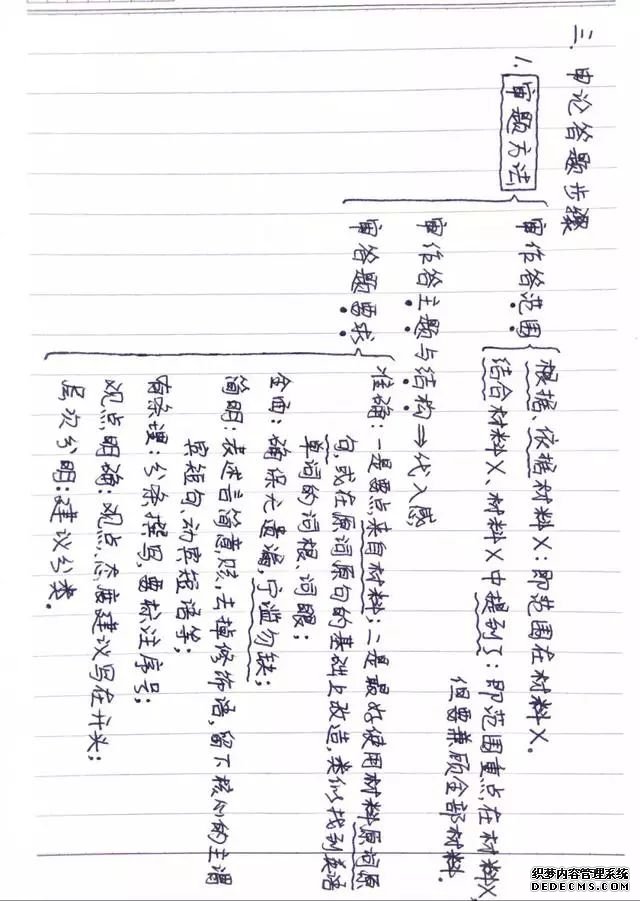 三.申论答题步骤
1.审题方法
审作答范围
根据、依据材料X:即范围在材料X。
结合材料X、材料X中提到了:即范围重点在材料X,
但要兼顾全部材料.
审作答主题与结构⇒代入感
审答题要求
准确:一是要点来自材料;二是最好使用材料原词原
句,或在原词原句的基础上改造,类似找到英语
单词的词根、词眼;
全面:确保无遗漏,宁滥勿缺;
简明:表述言简意赅,去掉修饰语,留下核心的主谓
宾短句、动宾短语等;
有条理:分条撰写,要标注序号;
观点明确:观点、态度建议写在开头;
层次分明:建议分类.
织梦内容管理系统
DEDECMS.COM